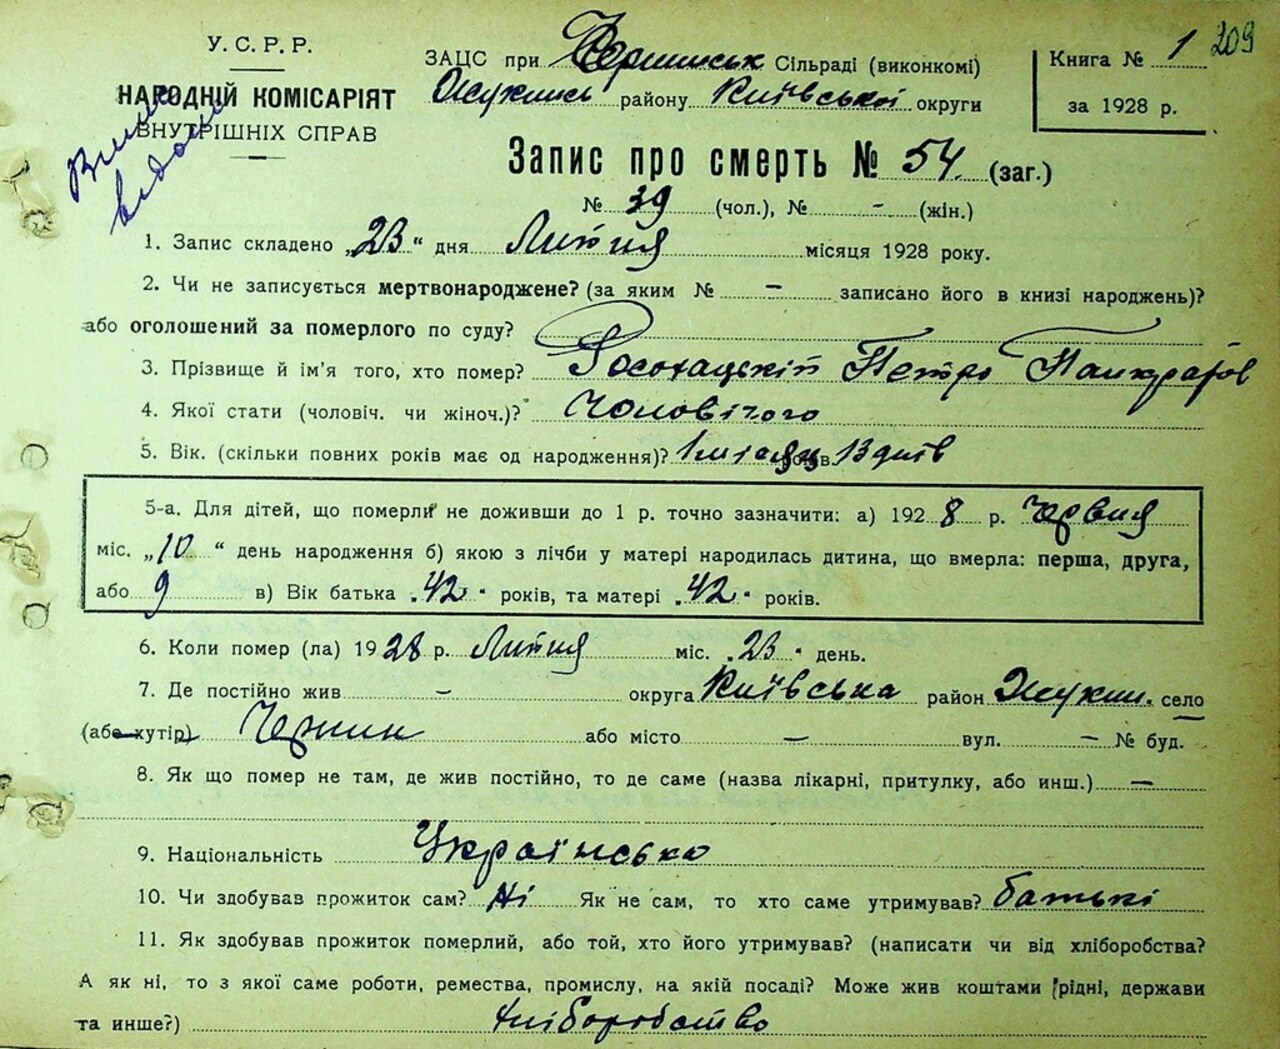 209
У. С. Р. Р.
НАРОДНІЙ КОМІСАРІЯТ
ВНУТРІШНІХ СПРАВ
ЗАЦС при Чернинськ Сільраді (виконкомі)
Жукинсь району Київської округи
Книга № 1
за 1928 р.
Запис про смерть № 54 (заг.)
№ 39 (чол.), № - (жін.)
1. Запис складено „23“ дня Липня місяця 1928 року.
2. Чи не записується мертвонароджене? (за яким № — записано його в книзі народжень)?
або оголошений за померлого по суду?
3. Прізвище й ім'я того, хто помер? Росохацський Петро Панкратов
4. Якої стати (чоловіч. чи жіноч.)? Чоловічого
5. Вік. (скільки повних років має од народження)? 1 місяць 13 днів
5-а. Для дітей, що померли не доживши до 1 р. точно зазначити: а) 1928 р. Червня
міс. „10“ день народження б) якою з лічби у матері народилась дитина, що вмерла: перша, друга,
або 9 в) Вік батька „42“ років, та матері „42“ років.
6. Коли помер (ла) 1928 р. Липня міс. „23“ день.
7. Де постійно жив - округа Київська район Жукин. село
(або хутір) Чернин або місто — вул. — № буд.
8. Як що помер не там, де жив постійно, то де саме (назва лікарні, притулку, або инш.) —
9. Національність Українсько
10. Чи здобував прожиток сам? Ні Як не сам, то хто саме утримував? батькі
11. Як здобував прожиток померлий, або той, хто його утримував? (написати чи від хліборобства?
А як ні, то з якої саме роботи, ремества, промислу, на якій посаді? Може жив коштами рідні, держави
та инше?) Хліборобство